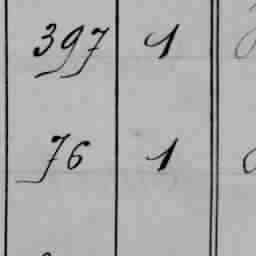 397 1
76 1